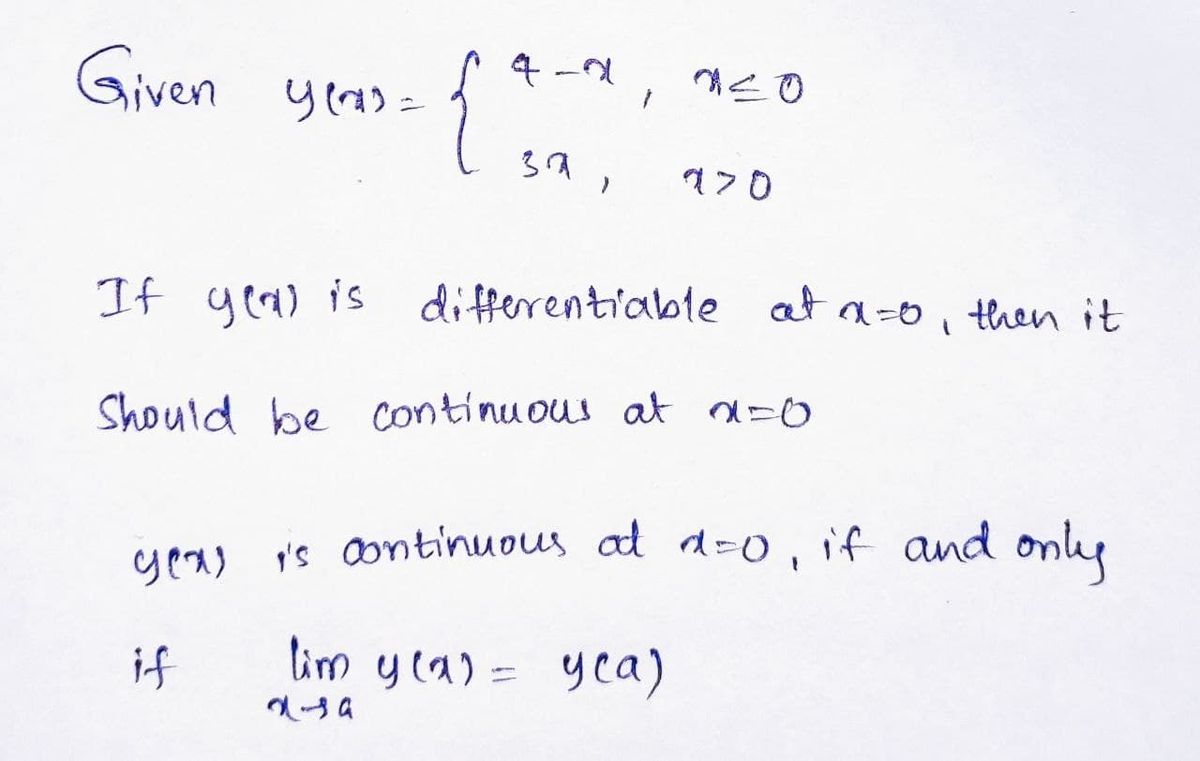 Given y(x) = { 4-x, x≤0
3x, x>0
If y(x) is differentiable at x=0, then it
Should be continuous at x=0
y(x) is continuous at x=0, if and only
if lim y(x) = y(a)
x→a